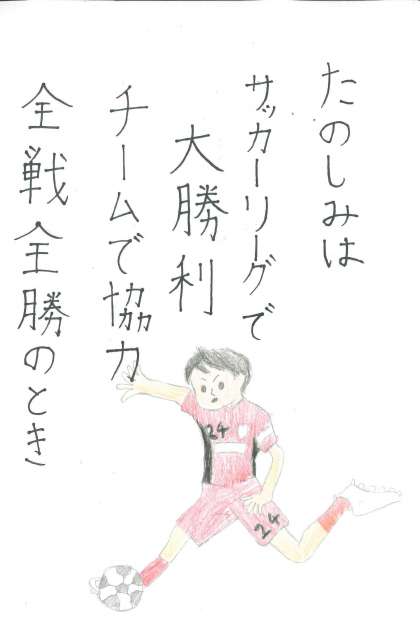 たのしみは
サッカーリーグで
大勝利
チームで協力
全戦全勝のとき
24
24